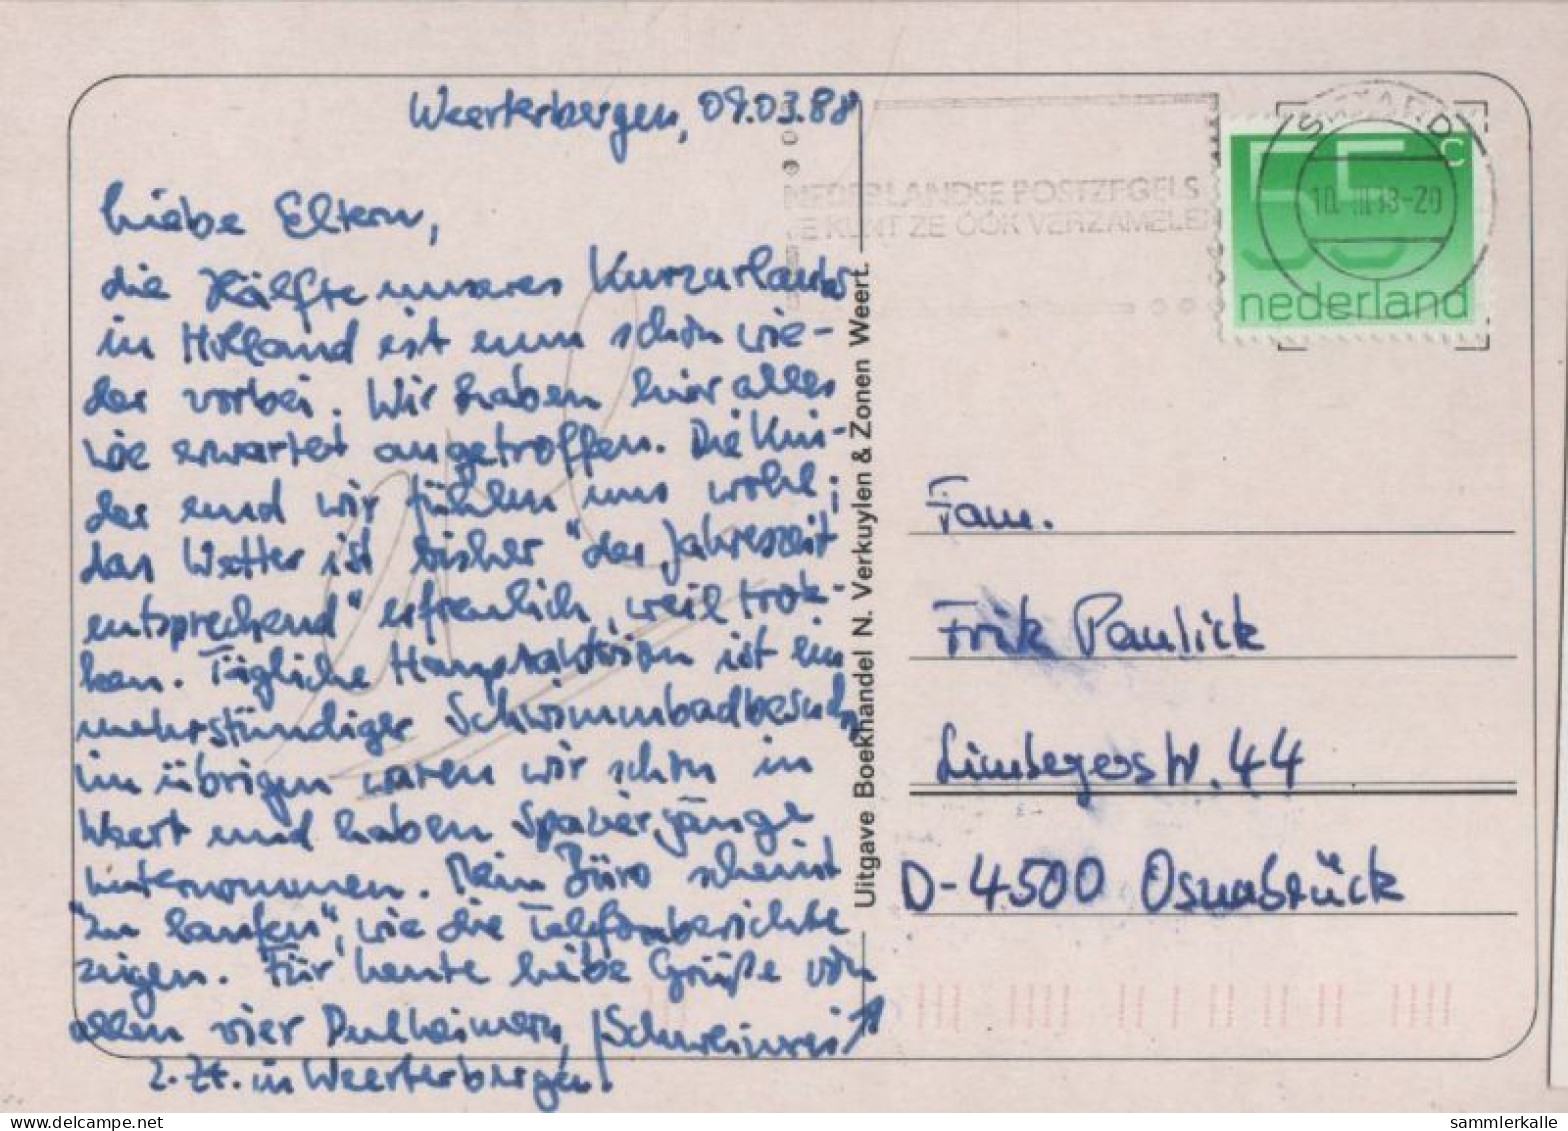 Weerterbergen, 09.03.88
Liebe Eltern,
die Hälfte unseres Kurzurlaubs
in Holland ist nun schon wie-
der vorbei. Wir haben hier alles
wie erwartet angetroffen. Die Kin-
der und wir fühlen uns wohl;
das Wetter ist bisher "der Jahreszeit
entsprechend" erfreulich, weil trok-
ken. Tägliche Hauptaktion ist ein
mehrstündiger Schwimmbadbesuch,
im übrigen waren wir schon in
Weert und haben Spaziergänge
unternommen. Mein Büro scheint
"zu laufen", wie die Telefonberichte
zeigen. Für heute liebe Grüße von
allen vier
z.Zt. in Weerterbergen!
Uitgave Boekhandel N. Verkuylen & Zonen Weert.
NEDERLANDSE POSTZEGELS
JE KUNT ZE ÓÓK VERZAMELEN
SITTARD
10. III. 18-20
55 c
nederland
Fam.
Paulick
44
D-4500 Osnabrück
sammlerkalle